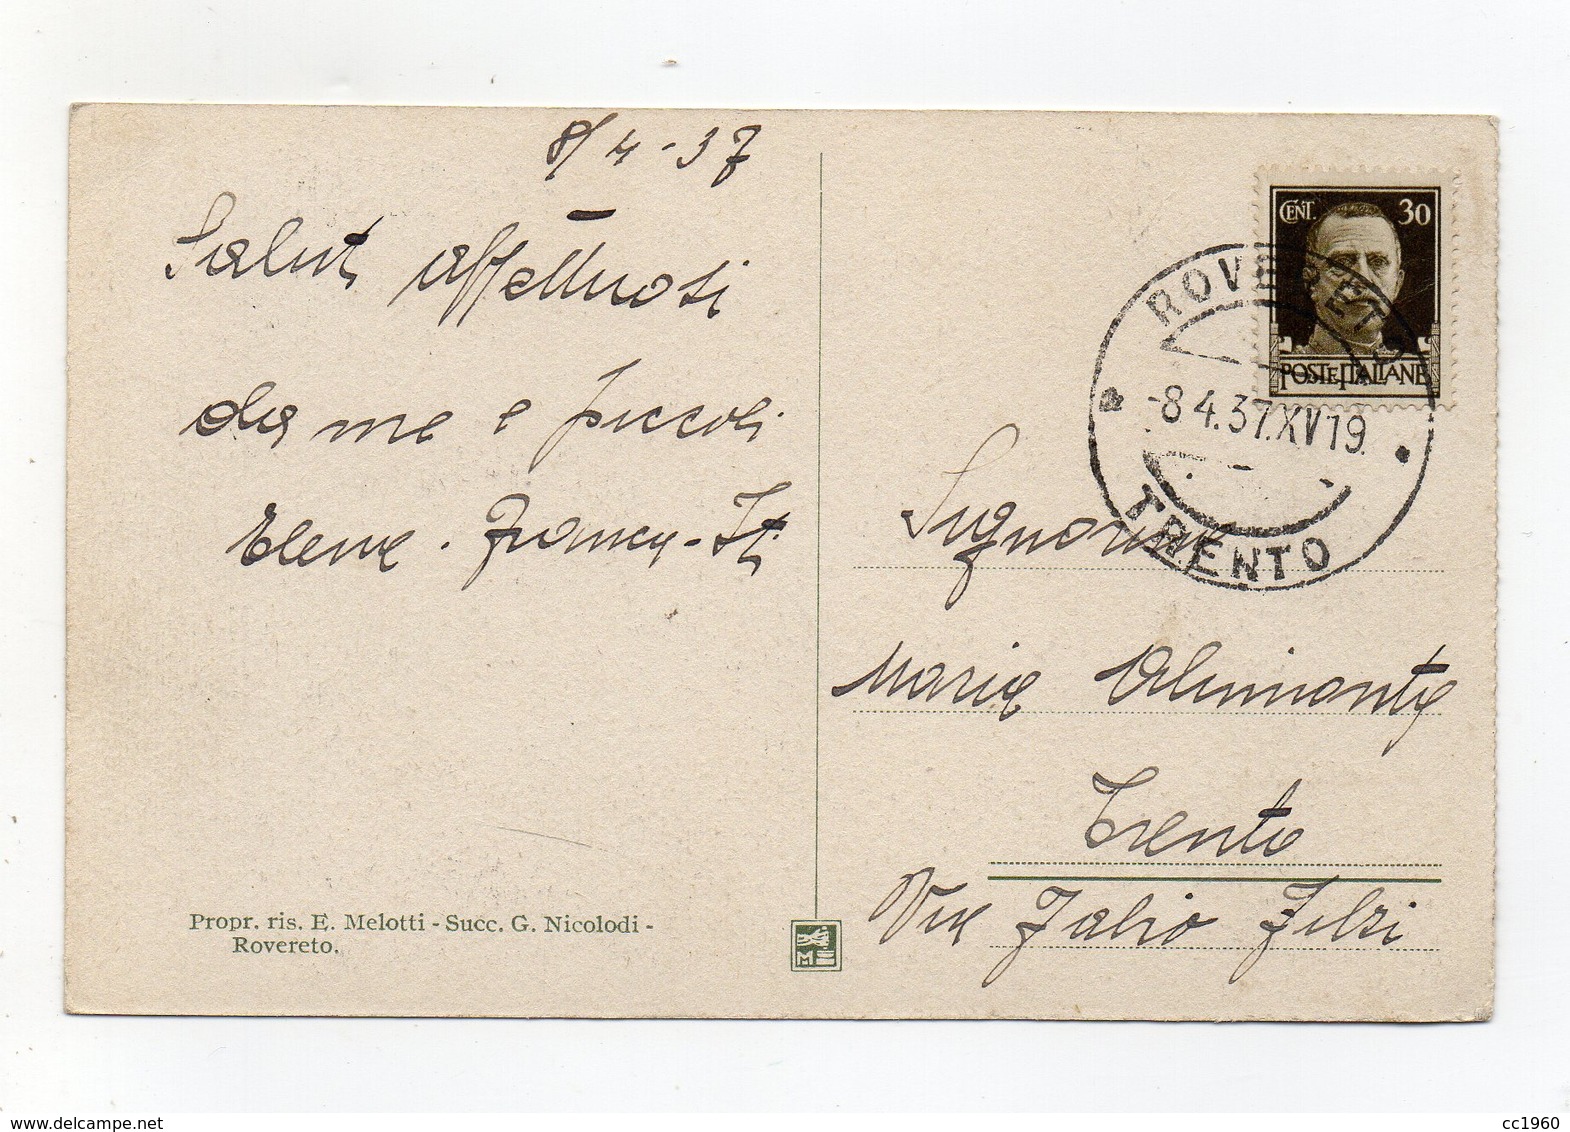 8/4-37
Saluti affettuosi
da me e piccoli
Elena. Franca-
Propr. ris. E. Melotti - Succ. G. Nicolodi -
Rovereto.
M
CENT. 30
POSTE ITALIANE
ROVERETO
-8 4.37.XV 19
TRENTO
Signorina
Maria Alimonta
Trento
Via Fabio Filzi
www.delcampe.net
cc1960